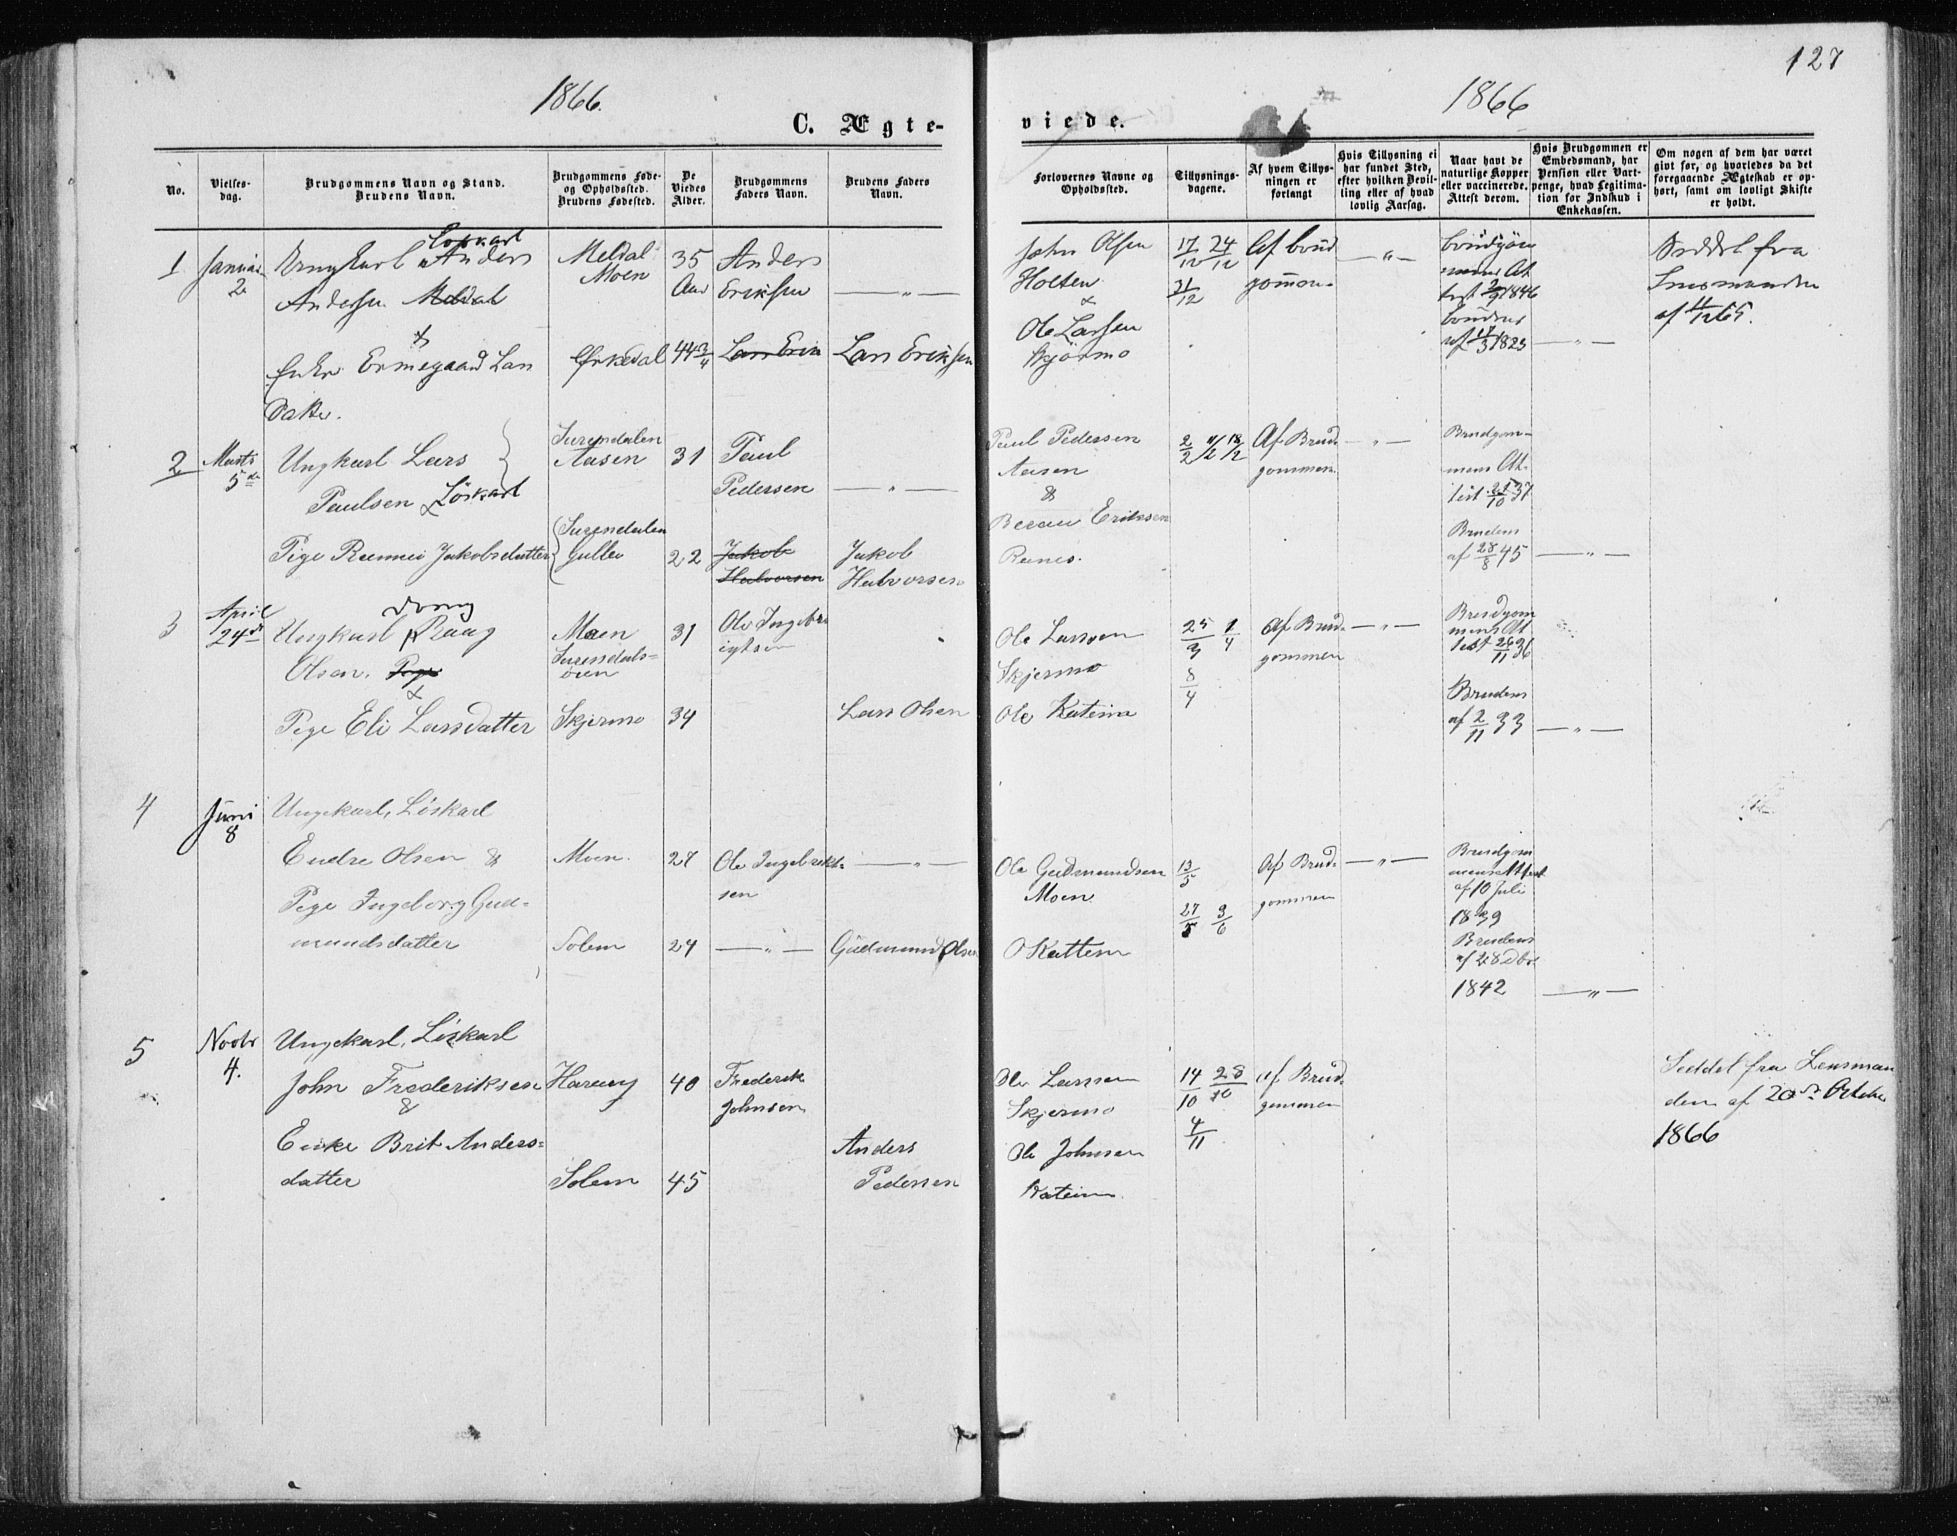 127
1866.
1866
C. Ægte-
viede.
No.
Vielses-
dag.
Brudgommens Navn og Stand.
Brudens Navn.
Brudgommens Føde-
og Opholdssted.
Brudens Fødested.
De
Viedes
Alder.
Brudgommens
Faders Navn.
Brudens Faders
Navn.
Forlovernes Navne og
Opholdssted.
Tillysnings-
dagene.
Af hvem Tillys-
ningen er
forlangt
Hvis Tillysning ei
har fundet Sted,
efter hvilken Bevil-
ling eller af hvad
lovlig Aarsag.
Naar havt de
naturlige Kopper
eller vaccinerede.
Attest derom.
Hvis Brudgommen er
Embedsmand, har
Pension eller Vart-
penge, hvad Legitima-
tion for Indskud i
Enkekassen.
Om nogen af dem har været
gift før, og hvorledes da det
foregaaende Ægteskab er op-
hørt, samt om lovligt Skifte
er holdt.
1
Januar
2
Ungkarl Anders
Andersen Meldal
&
Enke Ermegaard Lars
Datter.
Meldal
Moen
Ørkedal
35
Aar
44 3/4
Anders
Eriksen
Lars Erik
— " —
Lars Eriksen
John Olsen
Holten
&
Ole Larsen
Skjørmo
17/12 24/12
31/12
Af Brud
gommen
— " —
Brudgom
mens At
test 2/9 1846
Brudens
af 17/3 1823
— " —
Seddel fra
Lensmanden
af 11/12 65.
2
Marts
5te
Ungkarl Lars
Paulsen Löskarl
Pige Rannei Jakobsdatter
Surendalen
Aasen
Surendalen
Gulla
31
22
Paul
Pedersen
Jakob
Halvorsen
— " —
Jakob
Halvorsen
Paul Pedersen
Aasen
&
Eriksen
Renes.
2/2 11/2 18/2
Af Brud-
gommen.
— " —
Brudgom-
mens At-
test 21/10 37
Brudens
af 28/8 45
— " —
3
April
24de
dreng
Ungkarl
Olsen. Pige
&
Pige Eli Larsdatter
Moen
Surendals-
ören
Skjermo
31
34
Ole Ingebr
igtsen
Lars Olsen
Ole Larsen
Skjermo
Ole Katena
25/3 1/4
8/4
Af Brud-
gommen
— " —
Brudgom
mens At
test 26/11 36
Brudens
af 2/11 33
— " —
4
Juni
8
Ungekarl, Löskarl
Endre Olsen &
Pige Ingeborg Gud-
mundsdatter
Moen.
Solem
27
24
Ole Ingebrikt-
sen
— " —
— " —
Gudmund Olsen
Ole Gudmundsen
Moen
O Kattem
13/5
27/5 3/6
Af Brud-
gommen
— " —
Brudgom
mens Attest
af 10 Juli
1839
Brudens
af 28 Dbr
1842
— " —
5
Novbr
4.
Ungekarl, Löskarl
John Frederiksen
&
Enke Brit Anders-
datter
Harang
Solem
40
45
Frederik
Johnsen
Anders
Pedersen
Ole Larsen
Skjermo
Ole Johnsen
14/10 28/10
4/11
af Brud-
gommen
Seddel fra Lensman
den af 20de October
1866